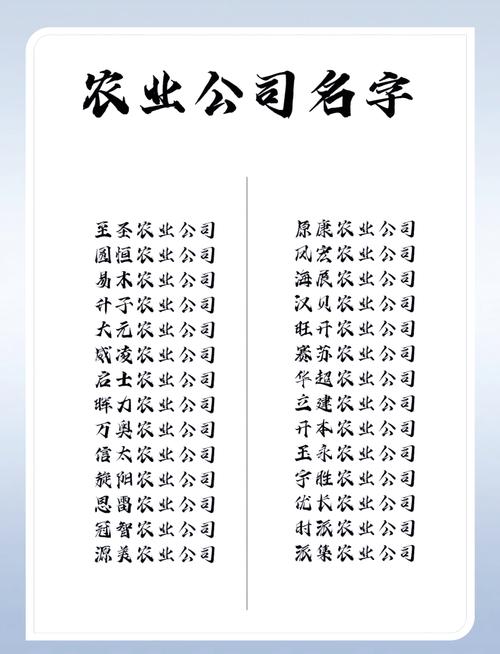 农业公司名字
至圣农业公司
圆恒农业公司
易木农业公司
升子农业公司
大元农业公司
威凌农业公司
启士农业公司
晖力农业公司
万奥农业公司
信太农业公司
旋阳农业公司
思雷农业公司
冠智农业公司
源美农业公司
原康农业公司
风宏农业公司
海辰农业公司
汉贝农业公司
旺开农业公司
赛苏农业公司
华超农业公司
立建农业公司
开本农业公司
王永农业公司
宇胜农业公司
优长农业公司
时派农业公司
派集农业公司